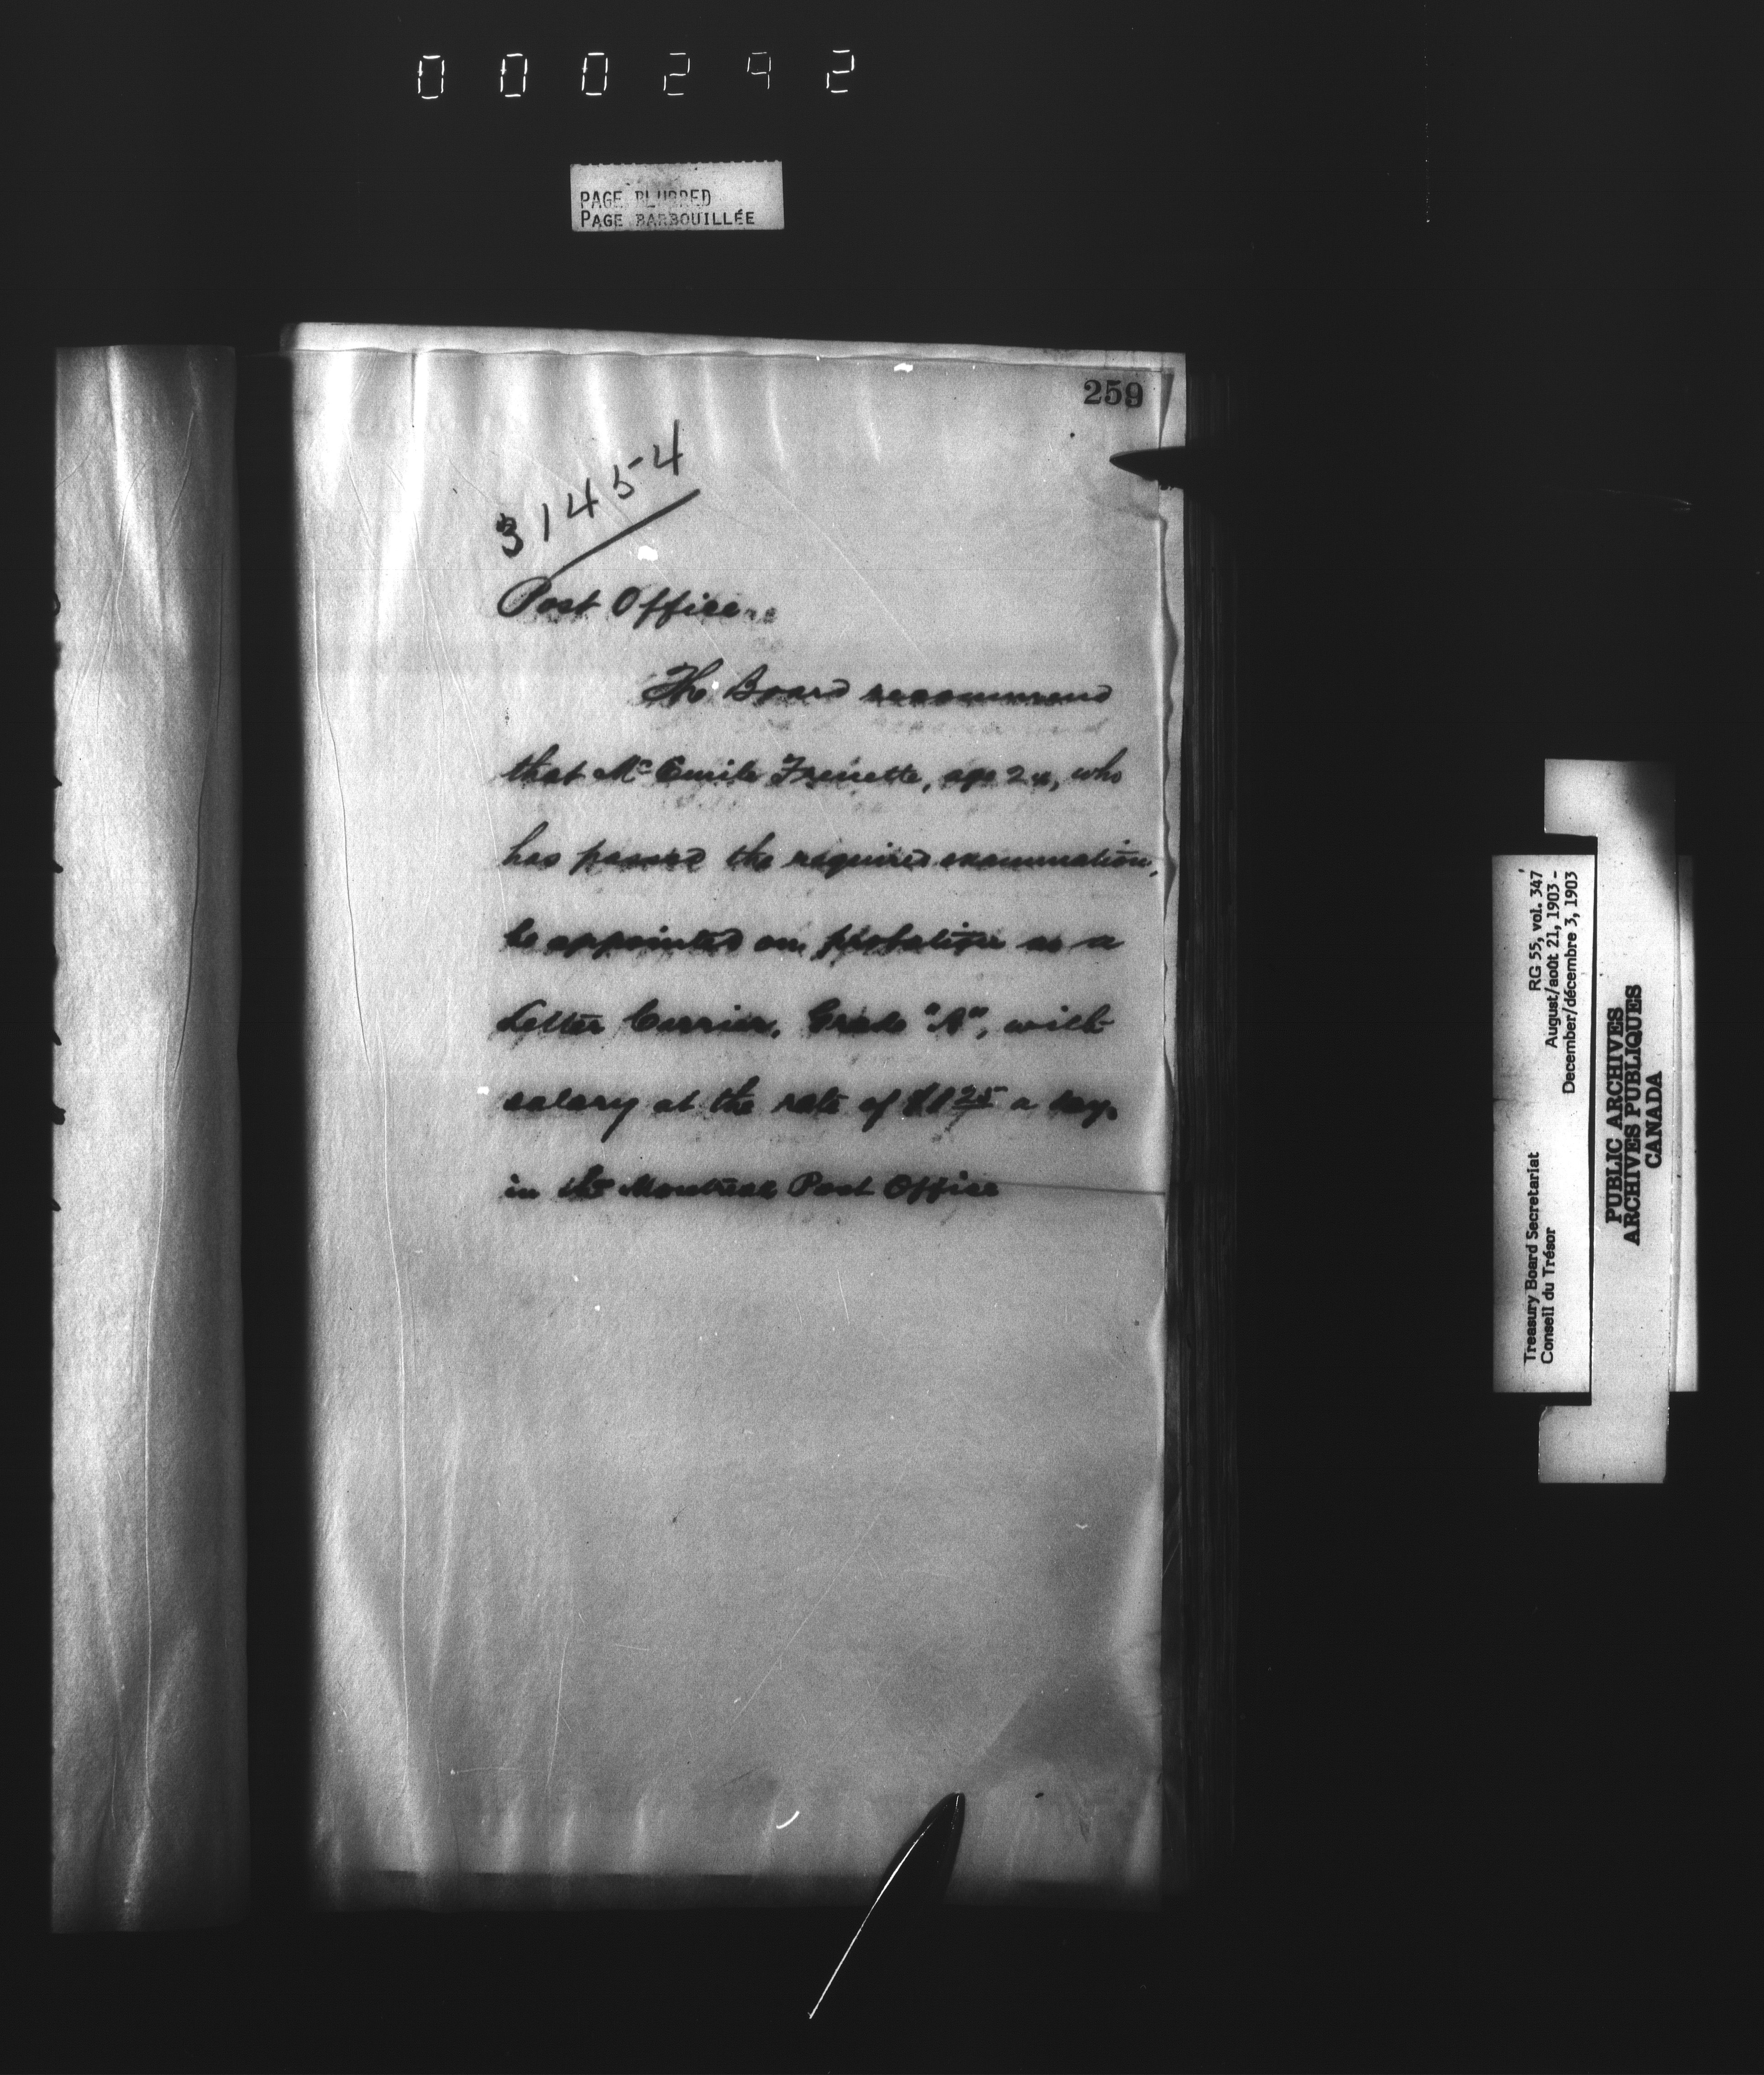 000292
PAGE BLURRED
PAGE BARBOUILLÉE
259
31454
Post Office
The Board recommend
that Mr Emile Frenette, age 24, who
has passed the required examination,
be appointed on probation as a
Letter Carrier, Grade "A", with
salary at the rate of $1 25 a day.
in the Montreal Post Office
Treasury Board Secretariat RG 55, vol. 347
Conseil du Trésor August/août 21, 1903 -
December/décembre 3, 1903
PUBLIC ARCHIVES
ARCHIVES PUBLIQUES
CANADA